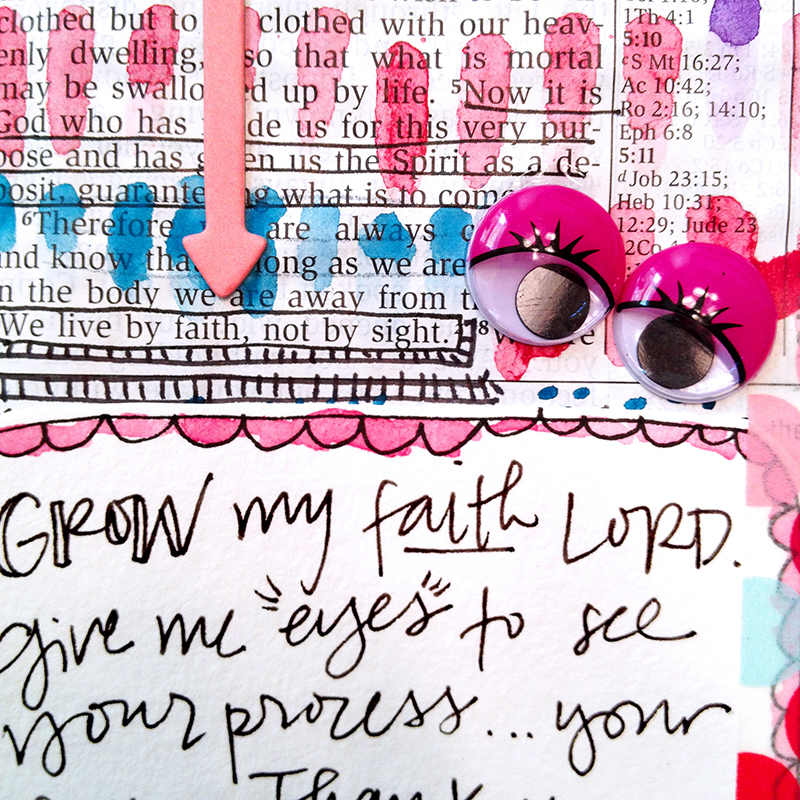 clothed but to clothed with our heav-
enly dwelling, so that what is mortal
may be swallo d up by life. ⁵Now it is
God who has de us for this very pur-
pose and has g en us the Spirit as a de-
posit, guarantee ng what is to com
⁶Therefore are always c
and know tha long as we are
n the body we are away from t
We live by faith, not by sight.
1Th 4:1
5:10
c S Mt 16:27;
Ac 10:42;
Ro 2:16; 14:10;
Eph 6:8
5:11
d Job 23:15;
Heb 10:31;
12:29; Jude 23
2Co
GROW my faith LORD.
give me "eyes" to see
your process... your
Thank